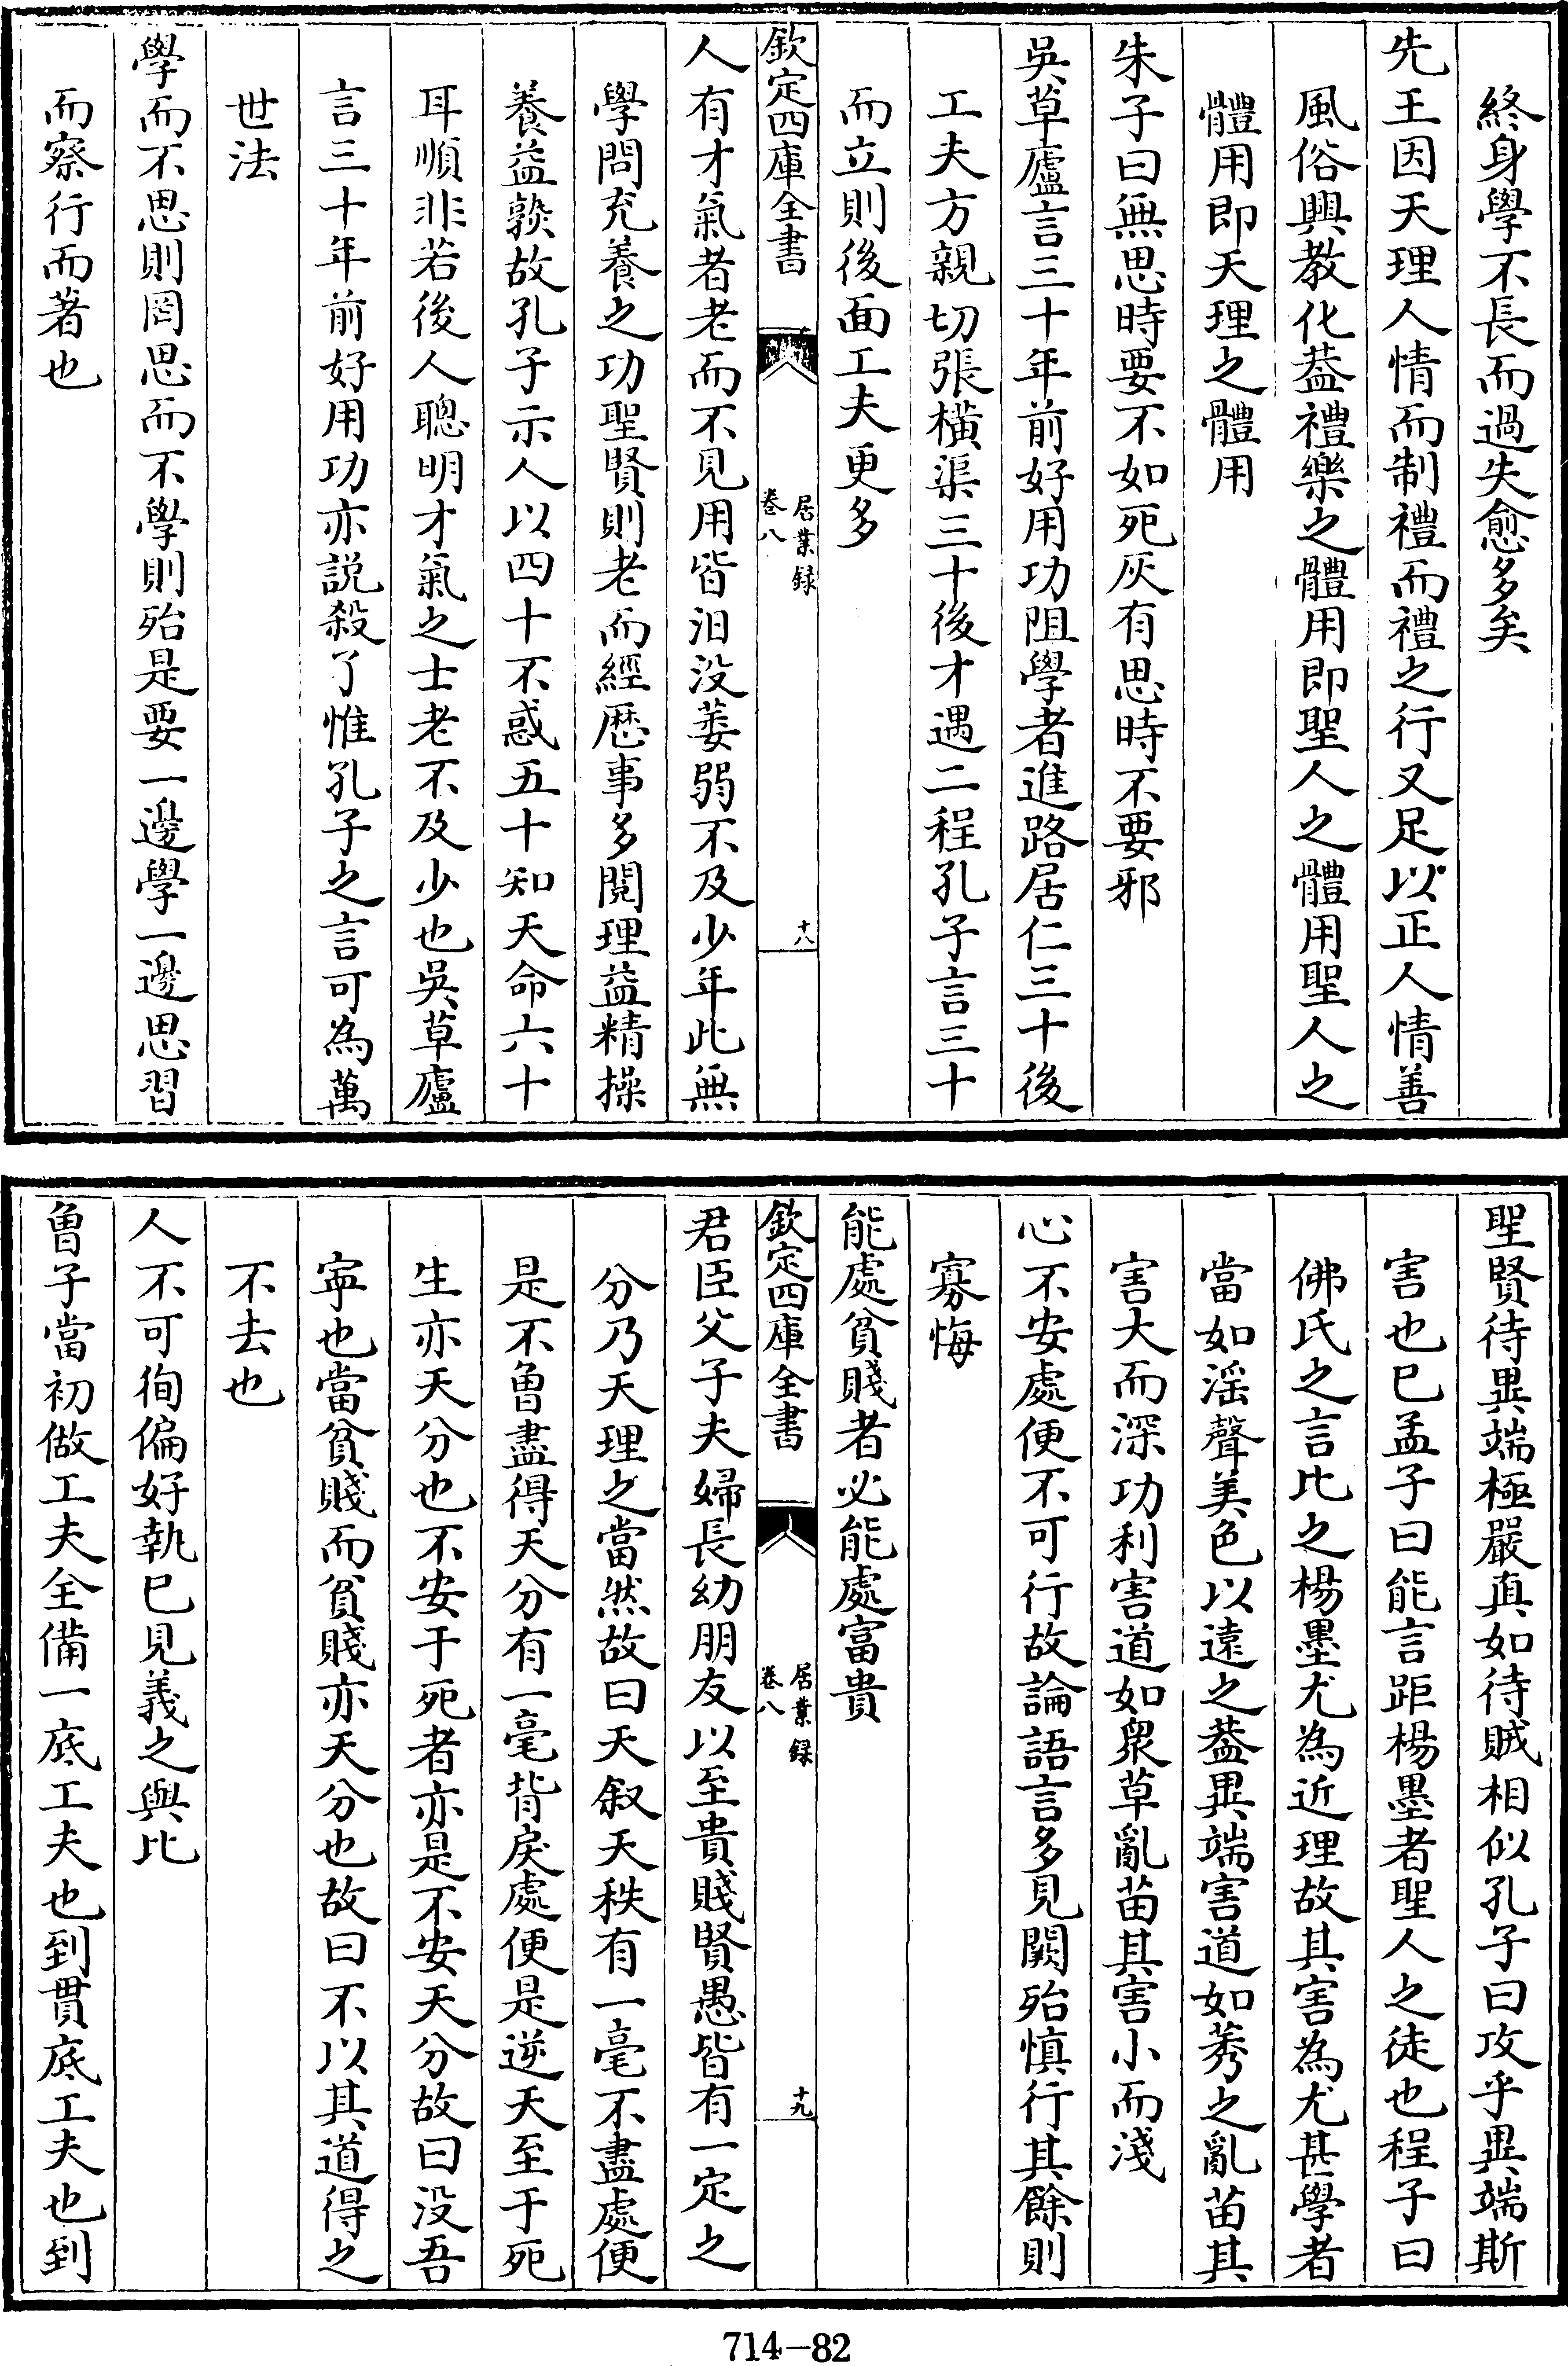 終身學不長而過失愈多矣
先王因天理人情而制禮而禮之行又足以正人情善
風俗興教化葢禮樂之體用即聖人之體用聖人之
體用即天理之體用
朱子曰無思時要不如死灰有思時不要邪
吳草廬言三十年前好用功阻學者進路居仁三十後
工夫方親切張橫渠三十後才遇二程孔子言三十
而立則後面工夫更多
欽定四庫全書
居業録
卷八
十八
人有才氣者老而不見用皆汩没萎弱不及少年此無
學問充養之功聖賢則老而經厯事多閱理益精操
養益熟故孔子示人以四十不惑五十知天命六十
耳順非若後人聰明才氣之士老不及少也吳草廬
言三十年前好用功亦説殺了惟孔子之言可為萬
世法
學而不思則罔思而不學則殆是要一邊學一邊思習
而察行而著也
聖賢待異端極嚴真如待賊相似孔子曰攻乎異端斯
害也已孟子曰能言距楊墨者聖人之徒也程子曰
佛氏之言比之楊墨尤為近理故其害為尤甚學者
當如滛聲美色以遠之葢異端害道如莠之亂苗其
害大而深功利害道如衆草亂苗其害小而淺
心不安處便不可行故論語言多見闕殆慎行其餘則
寡悔
能處貧賤者必能處富貴
欽定四庫全書
居業録
卷八
十九
君臣父子夫婦長幼朋友以至貴賤賢愚皆有一定之
分乃天理之當然故曰天叙天秩有一毫不盡處便
是不曾盡得天分有一毫背戾處便是逆天至于死
生亦天分也不安于死者亦是不安天分故曰没吾
寧也當貧賤而貧賤亦天分也故曰不以其道得之
不去也
人不可徇偏好執己見義之與比
曾子當初做工夫全備一底工夫也到貫底工夫也到
714-82